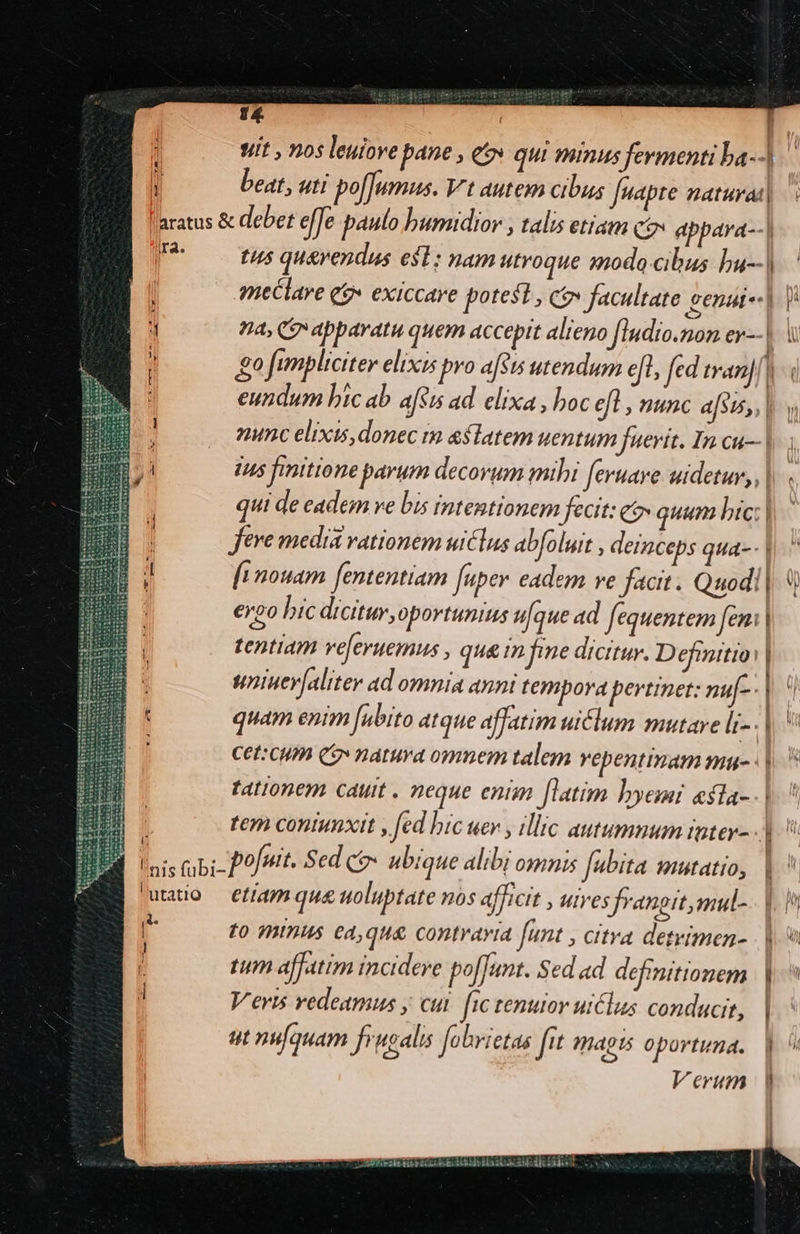 14
uit, nos leuiore pane, & qui minus fermenti ha-
beat, uti possumus. Vt autem cibus suapte natura
aratus & debet esse paulo humidior, talis etiam & appara-
ira. tus quærendus est: nam utroque modo cibus hu-
mectare & exiccare potest, & facultate genui-
na, & apparatu quem accepit alieno studio. non er-
go simpliciter elixis pro assis utendum est, sed transs
eundum hic ab assis ad elixa, hoc est, nunc assis,
nunc elixis, donec in æstatem uentum fuerit. In cu-
ius finitione parum decorum mihi seruare uidetur,
qui de eadem re bis intentionem fecit: & quum hic
fere mediã rationem uictus absoluit, deinceps qua-
si nouam sententiam super eadem re facit. Quod
ergo hic dicitur, oportunius usque ad sequentem sen
tentiam reseruemus, quæ in fine dicitur. Definitio
uniuersaliter ad omnia anni tempora pertinet: nus-
quam enim subito atque affatim uictum mutare li-
cet: cum & natura omnem talem repentinam mu-
tationem cauit. neque enim statim hyemi æsta-
tem coniunxit, sed hic uer, illic autumnum inter-
nis subi- posuit. Sed & ubique alibi omnis subita mutatio,
utatio etiam quæ uoluptate nos afficit, uires frangit, mul-
to minus ea, quæ contraria sunt, citra detrimen-
tum affatim incidere possunt. Sed ad definitionem
Veris redeamus, cui sic tenuior uictus conducit,
ut nusquam frugalis sobrietas sit magis oportuna.
Verum